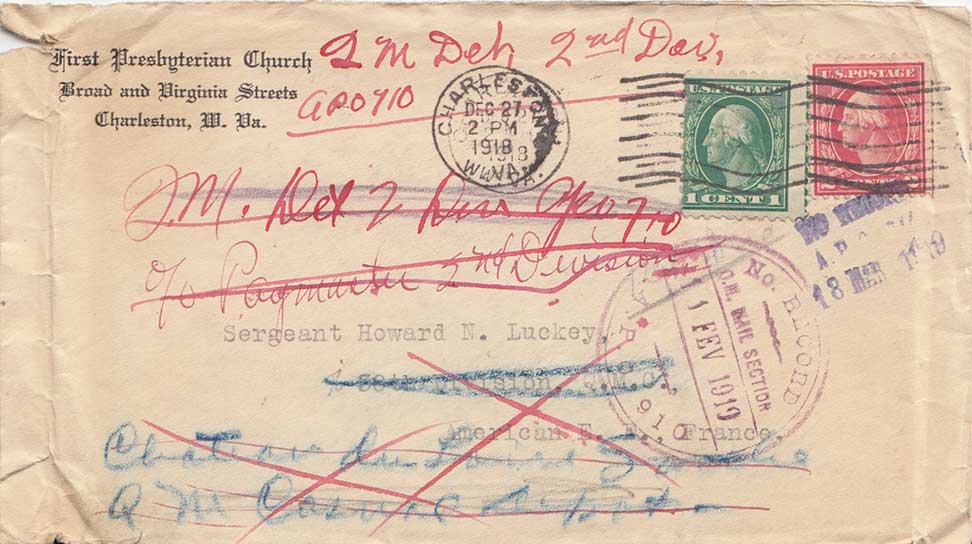 First Presbyterian Church
Broad and Virginia Streets
Charleston, W. Va.
Q M Det, 2nd Div,
APO 710
CHARLESTON
DEC 27
2 PM
1918
W. VA.
U.S. POSTAGE
1 CENT 1
U.S. POSTAGE
Q.M. Det 2 Div APO 710
c/o Paymaster 2nd Division
Sergeant Howard N. Luckey,
38th Division, Q.M.C.,
American E. F., France.
No. RECORD
Q.M. MAIL SECTION
1 FEV 1919
NO RECORD
A.P.O.
18 MAR 1919
Chateau du
Q M Depot